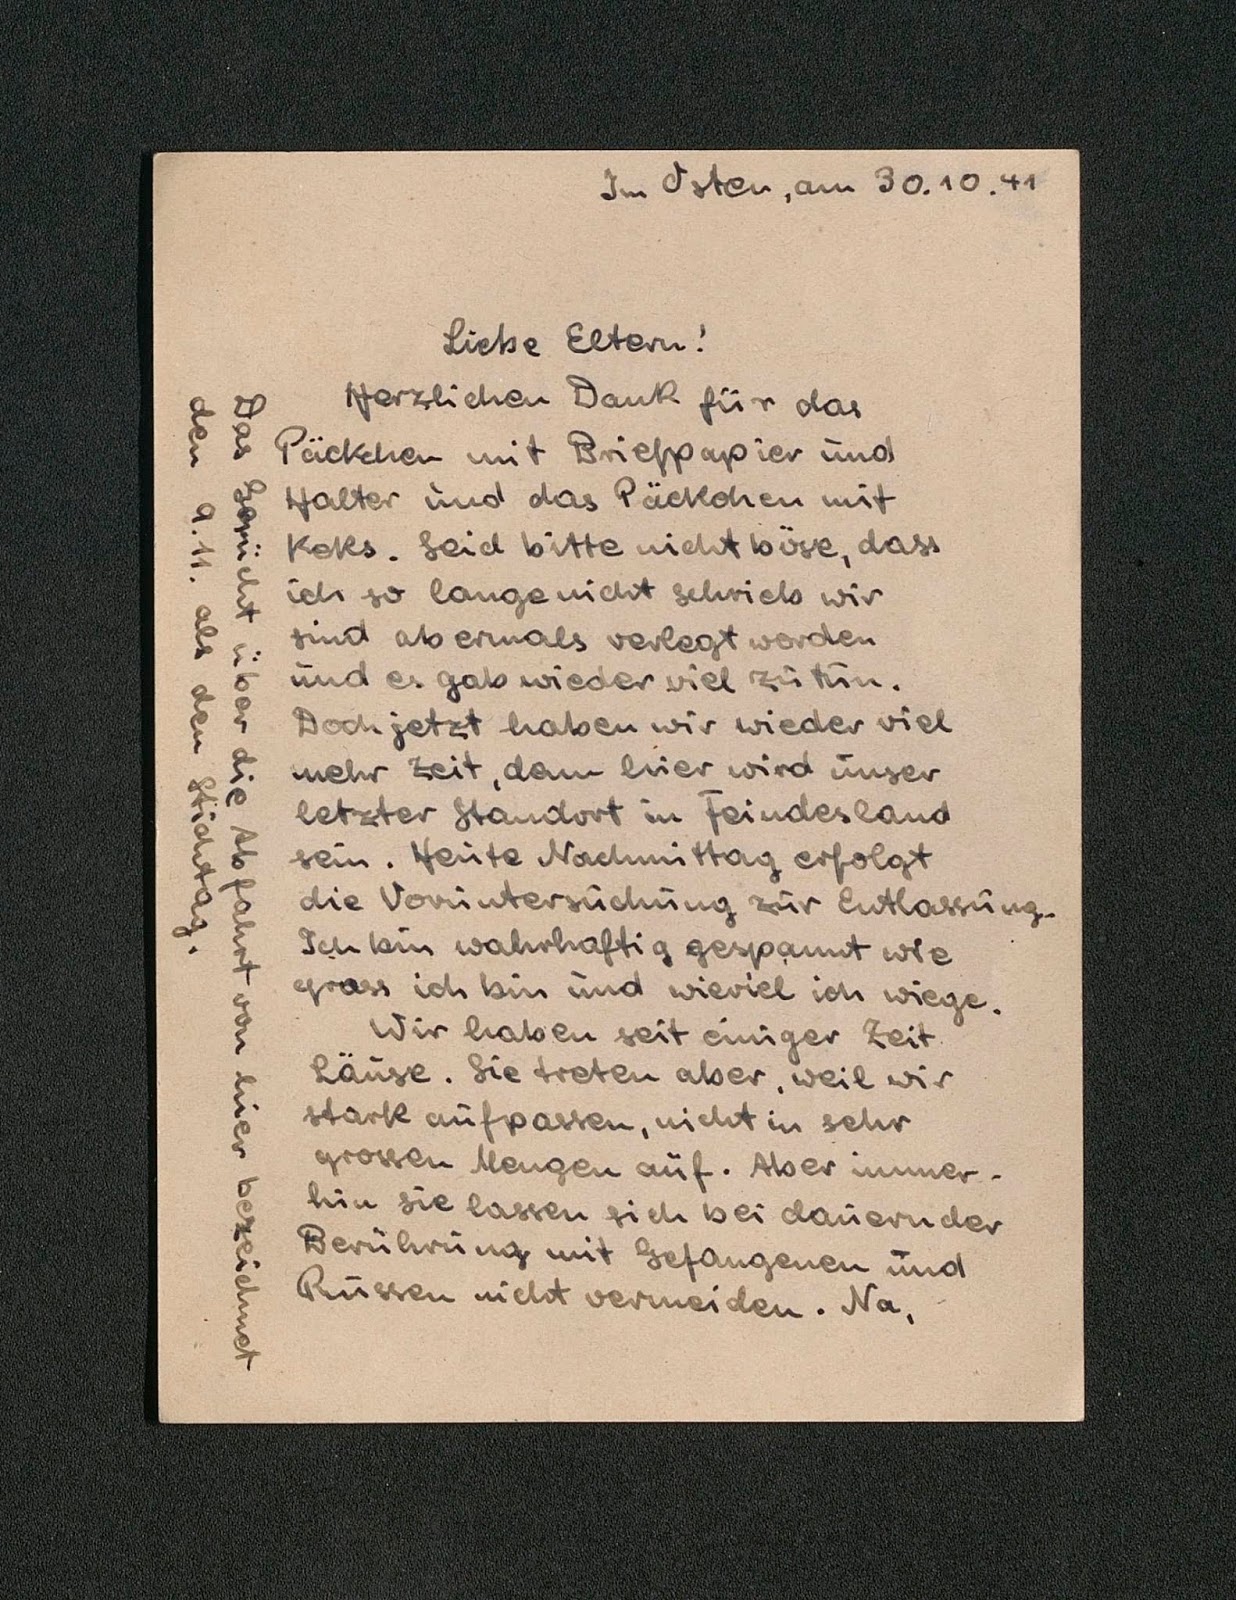 Im Osten, am 30.10.41
Liebe Eltern!
Herzlichen Dank für das
Päckchen mit Briefpapier und
Halter und das Päckchen mit
Keks. Seid bitte nicht böse, dass
ich so lange nicht schrieb wir
sind abermals verlegt worden
und es gab wieder viel zu tun.
Doch jetzt haben wir wieder viel
mehr Zeit, denn hier wird unser
letzter Standort in Feindesland
sein. Heute Nachmittag erfolgt
die Voruntersuchung zur Entlassung.
Ich bin wahrhaftig gespannt wie
gross ich bin und wieviel ich wiege.
Wir haben seit einiger Zeit
Läuse. Sie treten aber, weil wir
stark aufpassen, nicht in sehr
grossen Mengen auf. Aber immer-
hin sie lassen sich bei dauernder
Berührung mit Gefangenen und
Russen nicht vermeiden. Na,
Das Gerücht über die Abfahrt von hier bezeichnet
den 9.11. als den Stichtag.